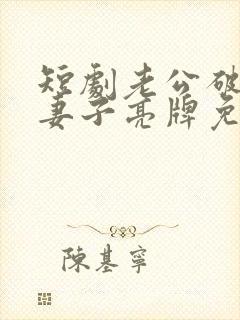 短劇老公破
妻子亮牌免
陳基寧